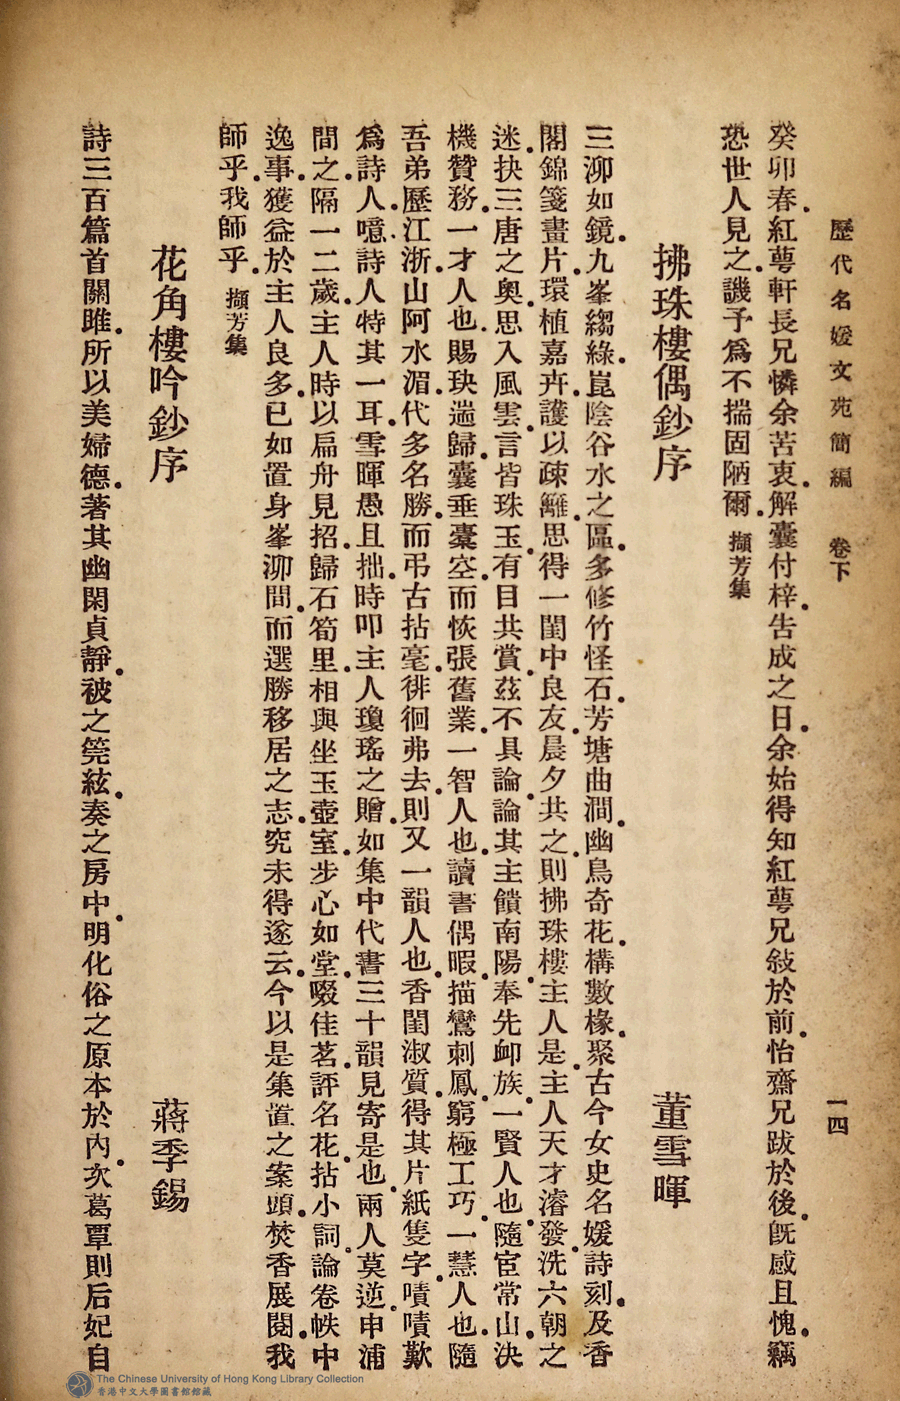 歷代名媛文苑簡編　卷下　一四
癸卯春.紅萼軒長兄憐余苦衷.解囊付梓.告成之日.余始得知紅萼兄敍於前.怡齋兄跋於後.旣感且愧.竊
恐世人見之.譏予爲不揣固陋爾.　擷芳集
拂珠樓偶鈔序　董雪暉
三泖如鏡.九峯縐綠.崑陰谷水之區.多修竹怪石.芳塘曲澗.幽鳥奇花.構數椽.聚古今女史名媛詩刻.及香
閣錦箋畫片.環植嘉卉.護以疎籬.思得一閨中良友.晨夕共之.則拂珠樓主人是.主人天才濬發.洗六朝之
迷.抉三唐之奧.思入風雲.言皆珠玉.有目共賞.茲不具論.論其主饋南陽.奉先卹族.一賢人也.隨宦常山.決
機贊務.一才人也.賜玦遄歸.囊垂橐空.而恢張舊業.一智人也.讀書偶暇.描鸞刺鳳.窮極工巧.一慧人也.隨
吾弟歷江浙.山阿水湄.代多名勝.而弔古拈毫.徘徊弗去.則又一韻人也.香閨淑質.得其片紙隻字.嘖嘖歎
爲詩人.噫.詩人特其一耳.雪暉愚且拙.時叩主人瓊瑤之贈.如集中代書三十韻見寄是也.兩人莫逆.申浦
間之.隔一二歲.主人時以扁舟見招.歸石筍里.相與坐玉壺室.步心如堂.啜佳茗.評名花.拈小詞.論卷帙.中
逸事.獲益於主人良多.已如置身峯泖間.而選勝移居之志.究未得遂云.今以是集置之案頭.焚香展閱.我
師乎.我師乎.　擷芳集
花角樓吟鈔序　蔣季錫
詩三百篇首關雎.所以美婦德.著其幽閑貞靜.被之筦絃.奏之房中.明化俗之原本於內.次葛覃則后妃自
The Chinese University of Hong Kong Library Collection
香港中文大學圖書館館藏